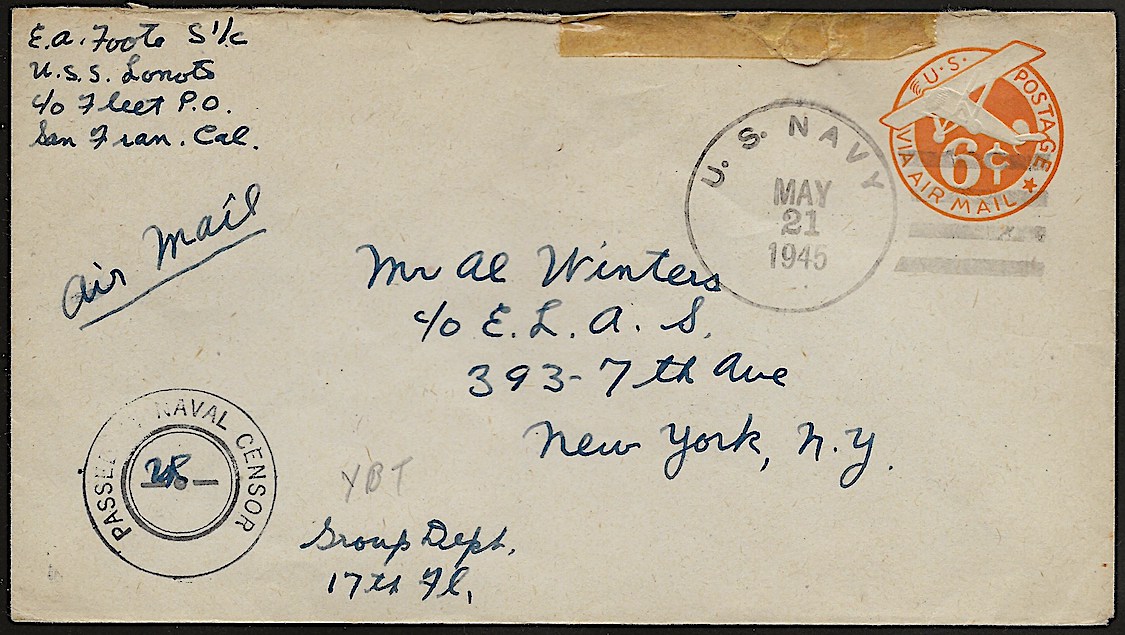 E.A. Foote S 1/c
U.S.S. Lanots
c/o Fleet P.O.
San Fran. Cal.
Air Mail
U.S. POSTAGE
6¢
VIA AIR MAIL
U. S. NAVY
MAY
21
1945
Mr Al Winters
c/o E. L. A. S.
393-7th Ave
New York, N.Y.
PASSED NAVAL CENSOR
YBT
Group Dept.
17th Fl.